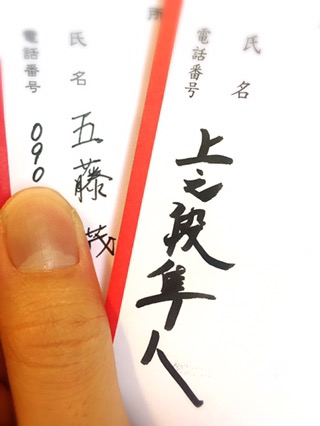 氏名
電話番号
上之段隼人
所
氏名
五藤茂
電話番号
090